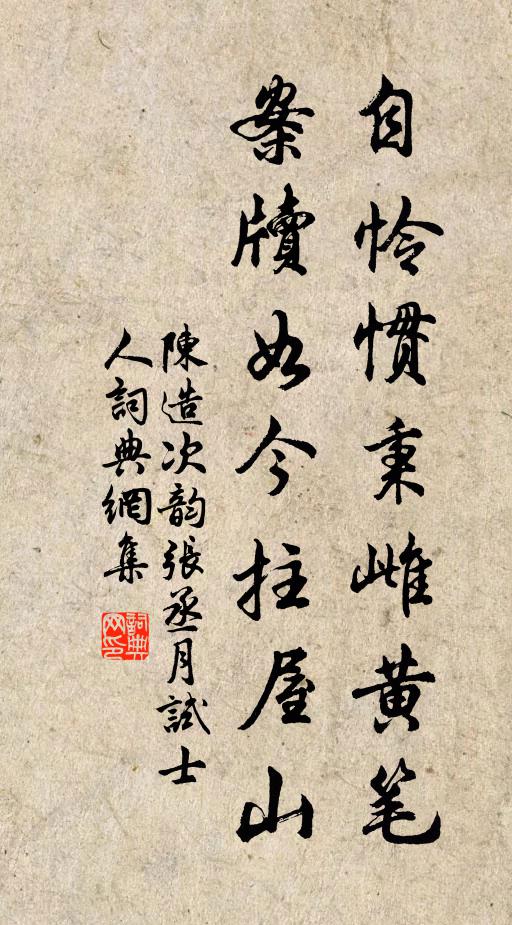 自怜慣秉雌黄笔
案牘如今拄屋山
陳造次韵張丞月試士
人詞典網集
詞典网印